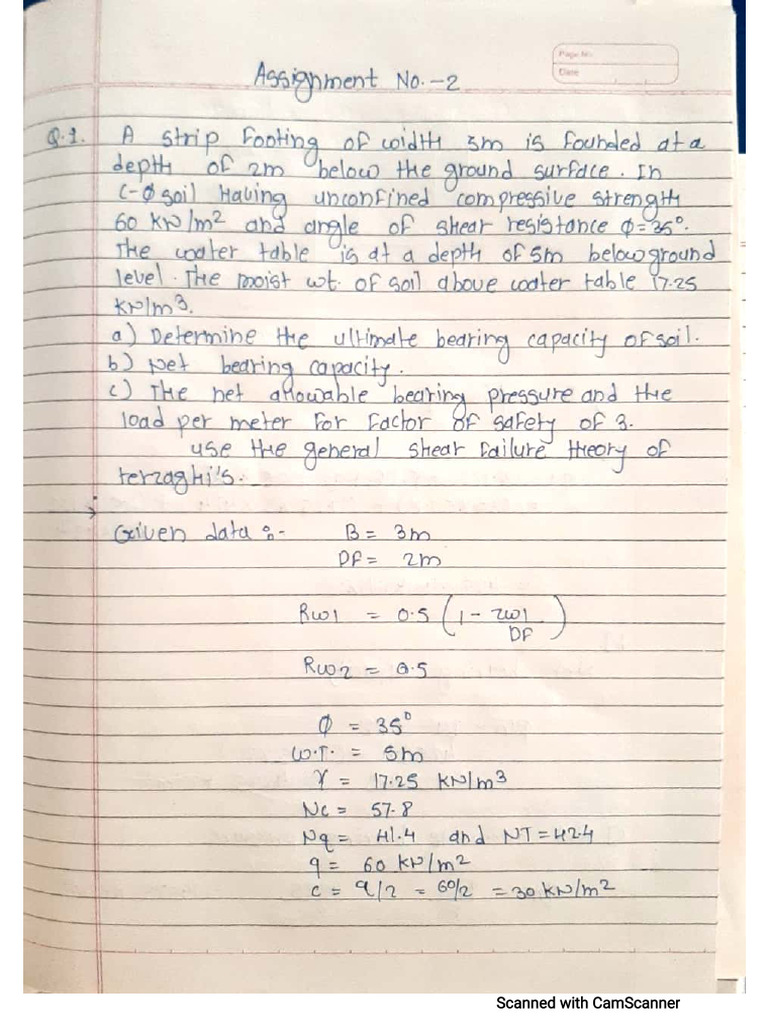 Page No.
Date
Assignment No.-2
Q.1. A strip footing of width 3m is founded at a
depth of 2m below the ground surface. In
C-Ø soil Having unconfined compressive strength
60 KN/m2 and angle of shear resistance Ø=35°.
The water table is at a depth of 5m below ground
level. The moist wt. of soil above water table 17.25
KN/m3.
a) Determine the ultimate bearing capacity of soil.
b) Net bearing capacity.
c) The net allowable bearing pressure and the
load per meter for factor of safety of 3.
use the general shear failure theory of
terzaghi's.
→
Given data :- B = 3m
DF = 2m
Rw1 = 0.5 (1 - zw1/DF)
Rw2 = 0.5
Ø = 35°
W.T. = 5m
γ = 17.25 KN/m3
Nc = 57.8
Nq = 41.4 and NT = 42.4
q = 60 KN/m2
c = q/2 = 60/2 = 30 KN/m2
Scanned with CamScanner